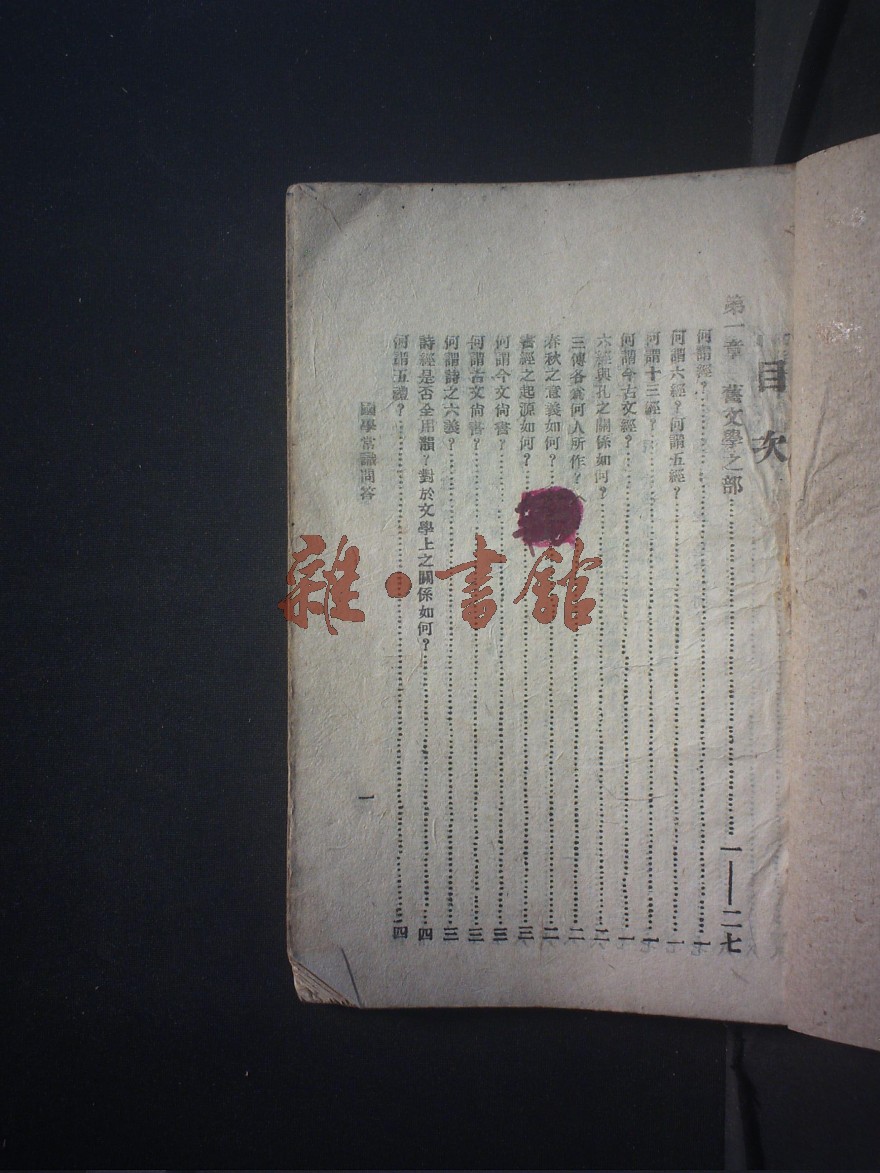 目次
第一章　舊文學之部……一——二七
何謂經？……一
何謂六經？何謂五經？……一
何謂十三經？……一
何謂今古文經？……一
六經與孔之關係如何？……二
三傳各爲何人所作？……二
春秋之意義如何？……二
書經之起源如何？……三
何謂今文尙書？……三
何謂古文尙書？……三
何謂詩之六義？……三
詩經是否全用韻？對於文學上之關係如何？……四
何謂五禮？……四
國學常識問答
一
雜·書館